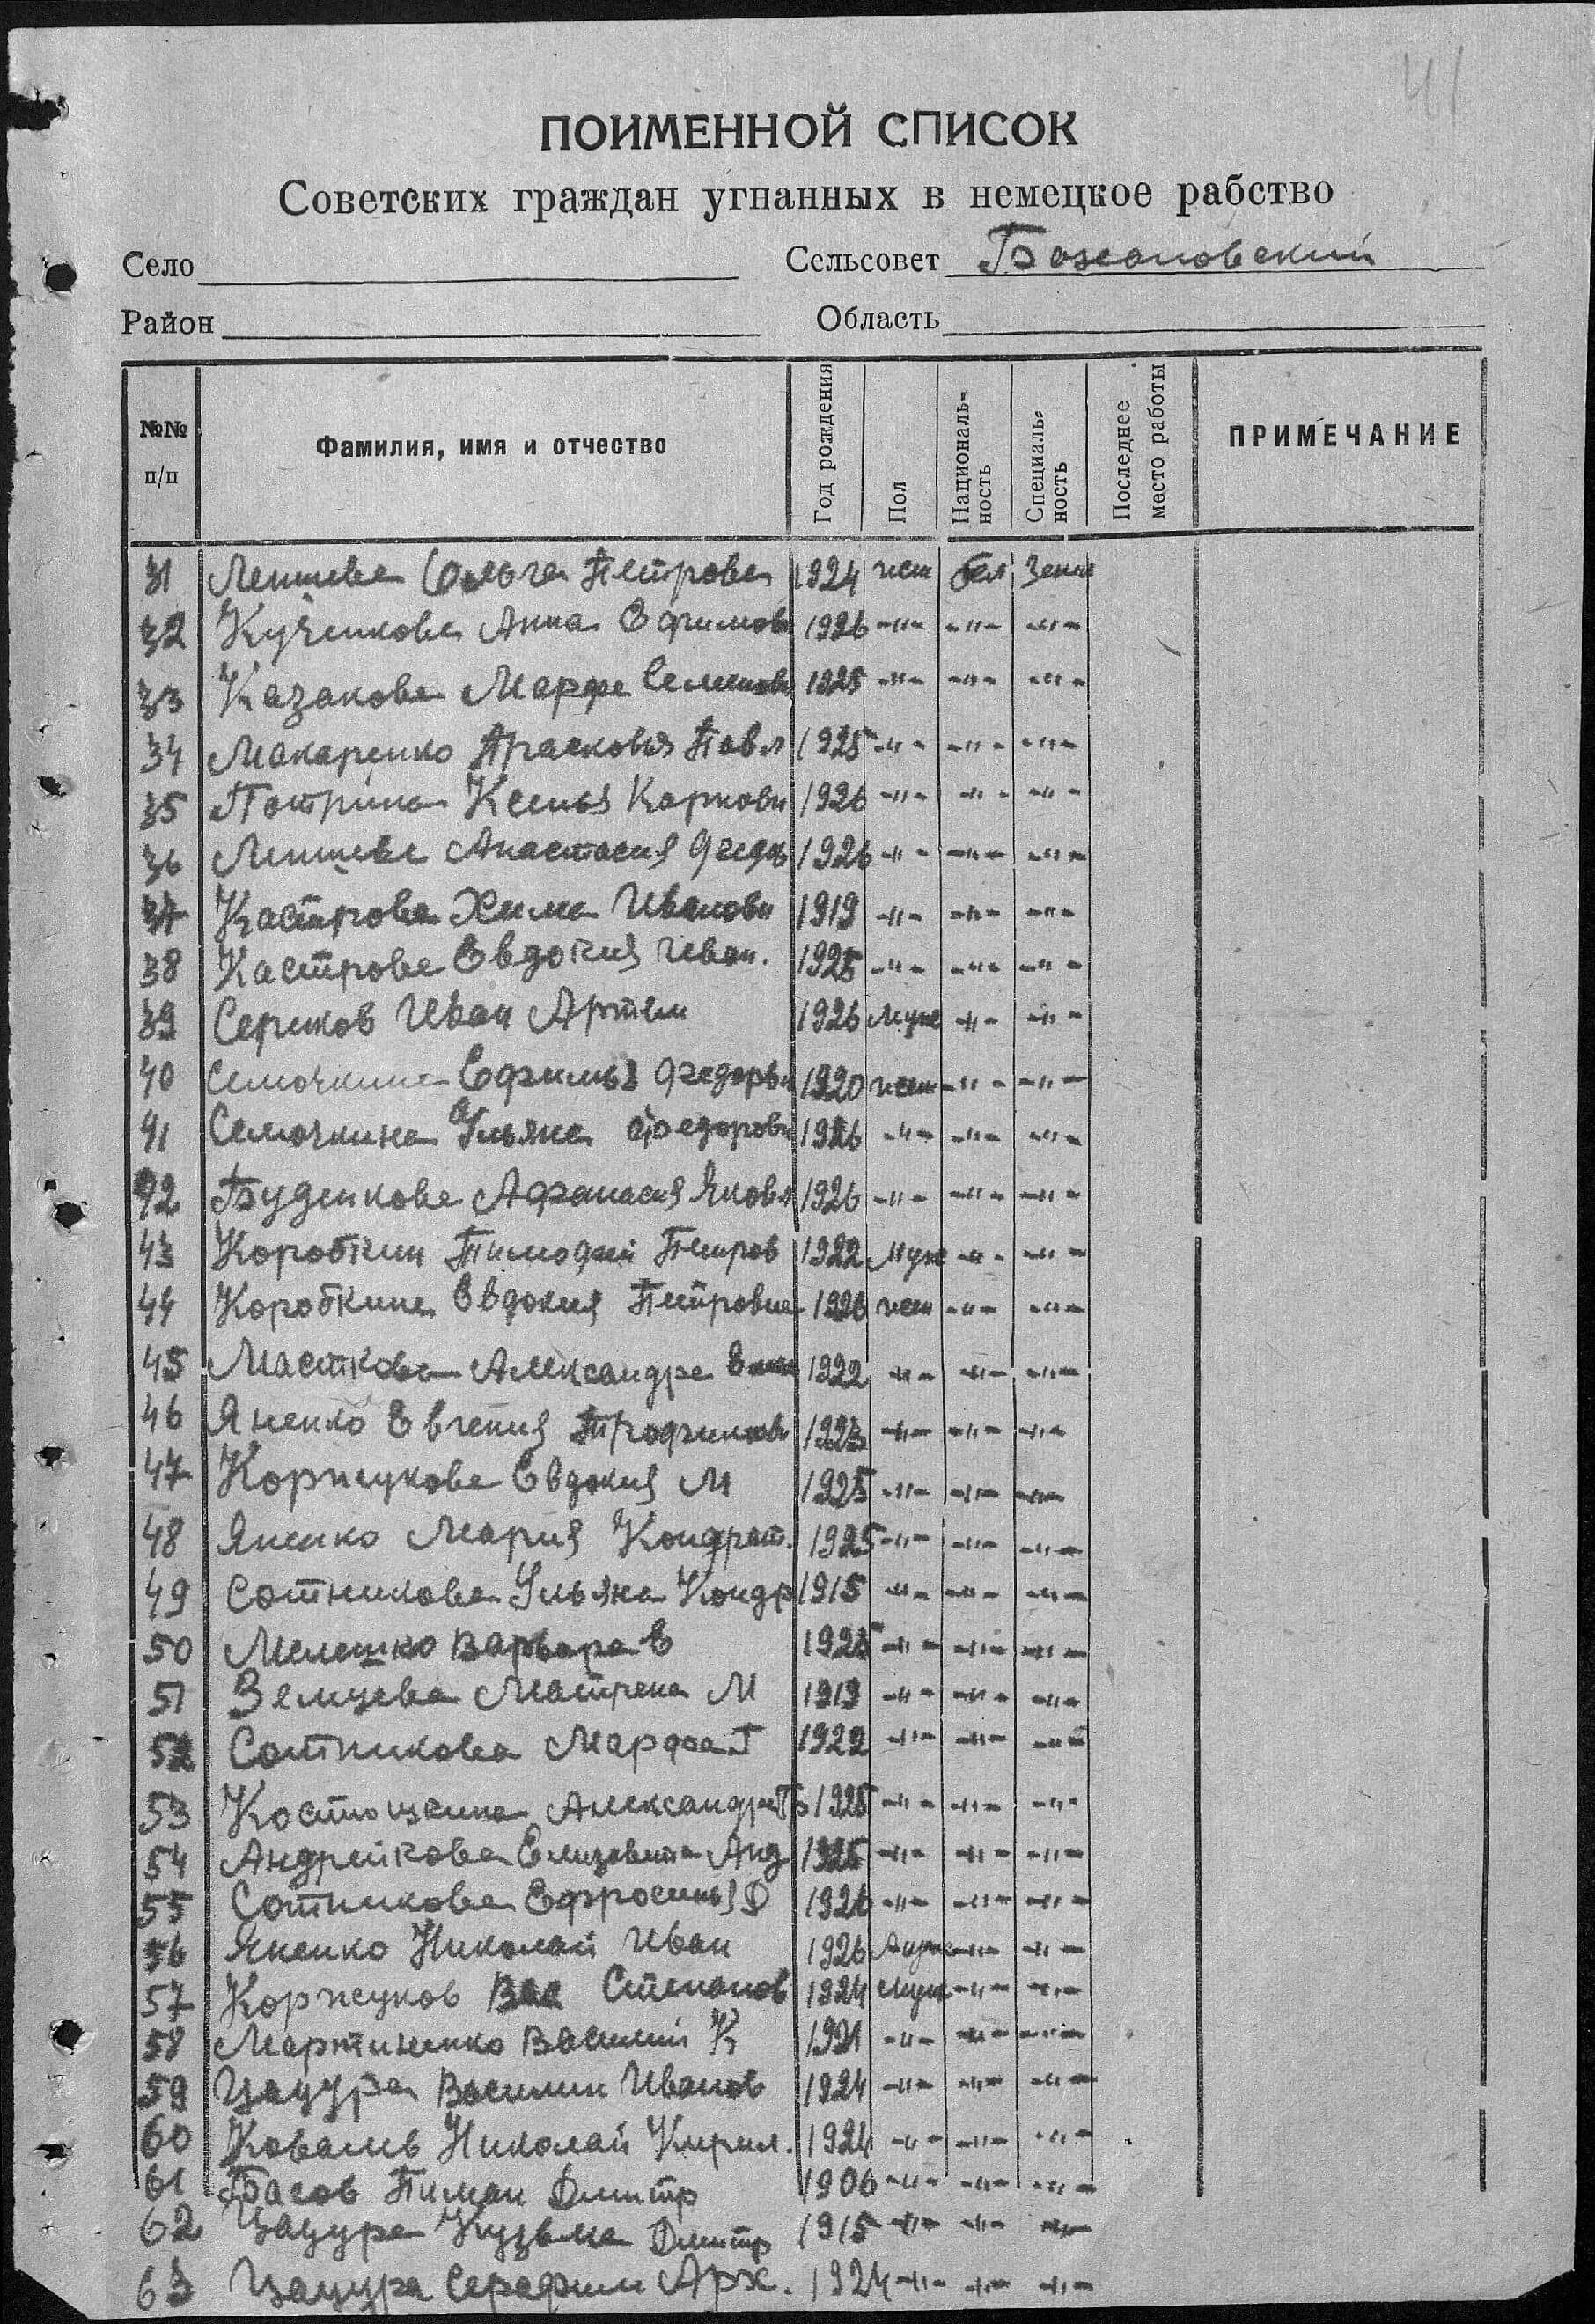 41
ПОИМЕННОЙ СПИСОК
Советских граждан угнанных в немецкое рабство
Село Сельсовет
Район Область
№№ п/п Фамилия, имя и отчество Год рождения Пол Националь-ность Специаль-ность Последнее место работы ПРИМЕЧАНИЕ
31 Ольга Петровна 1924 жен бел
32 Анна Ефимовн 1926 -"- -"- -"-
33 Казакова Марфа Семеновн 1925 -"- -"- -"-
34 Макаренко Прасковья Павл 1925 -"- -"- -"-
35 Ксенья Карповн 1926 -"- -"- -"-
36 Анастасия Федор 1926 -"- -"- -"-
37 Кастрова Хима Ивановн 1919 -"- -"- -"-
38 Кастрова Евдокия Иван. 1925 -"- -"- -"-
39 Сериков Иван Артем 1926 Муж -"- -"-
40 Семочкина Ефимья Федоровн 1920 жен -"- -"-
41 Семочкина Ульяна Федоровн 1926 -"- -"- -"-
42 Буденкова Афанасия Яковл 1926 -"- -"- -"-
43 Коробкин Тимофей Петров 1922 Муж -"- -"-
44 Коробкина Евдокия Петровна 1926 жен -"- -"-
45 Масткова Александра 1922 -"- -"- -"-
46 Яненко Евгения Трофимовн 1923 -"- -"- -"-
47 Коржукова Евдокия М 1925 -"- -"- -"-
48 Яненко Мария Кондрат. 1925 -"- -"- -"-
49 Сотникова Ульяна Кондр 1915 -"- -"- -"-
50 Мелешко Варвара Е 1925 -"- -"- -"-
51 Земцева Матрена М 1919 -"- -"- -"-
52 Сотникова Марфа Г 1922 -"- -"- -"-
53 Александра 1925 -"- -"- -"-
54 Андрейкова Елизавета Анд 1925 -"- -"- -"-
55 Сотникова Ефросинья Д 1926 -"- -"- -"-
56 Яненко Николай Иван 1926 -"- -"-
57 Коржуков Вас Степанов 1924 Муж -"- -"-
58 Мартиненко Василий К 1921 -"- -"- -"-
59 Цацура Василий Иванов 1924 -"- -"- -"-
60 Ковалев Николай Кирил. 1924 -"- -"- -"-
61 Басов Пиман Дмитр 1906 -"- -"- -"-
62 Цацура Кузьма Дмитр 1915 -"- -"- -"-
63 Цацура Серафим Арх. 1924 -"- -"- -"-